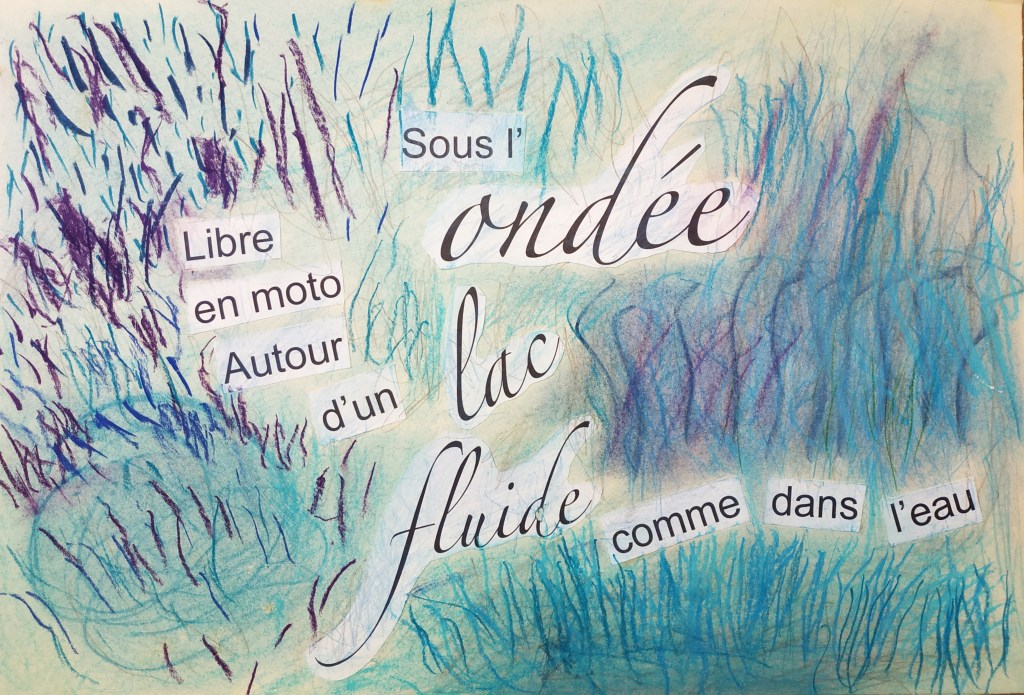 Sous l'
ondée
Libre
en moto
Autour
d'un
lac
fluide
comme dans l'eau